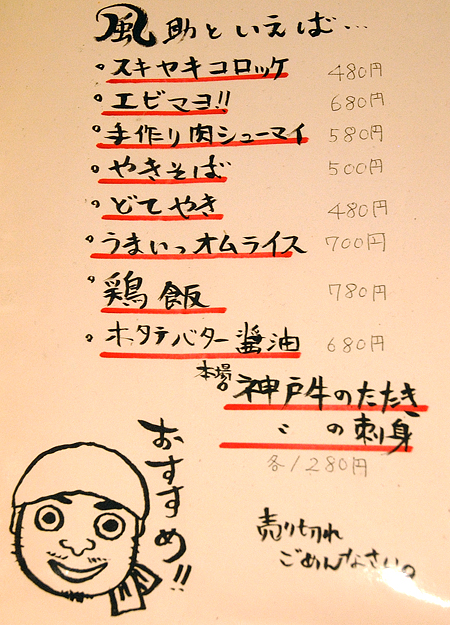 風助といえば…
・スキヤキコロッケ 480円
・エビマヨ!! 680円
・手作り肉シューマイ 580円
・やきそば 500円
・どてやき 480円
・うまいっオムライス 700円
・鶏飯 780円
・ホタテバター醤油 680円
本場の神戸牛のたたき
〃 の刺身
各1280円
おすすめ!!
売り切れ
ごめんなさい。